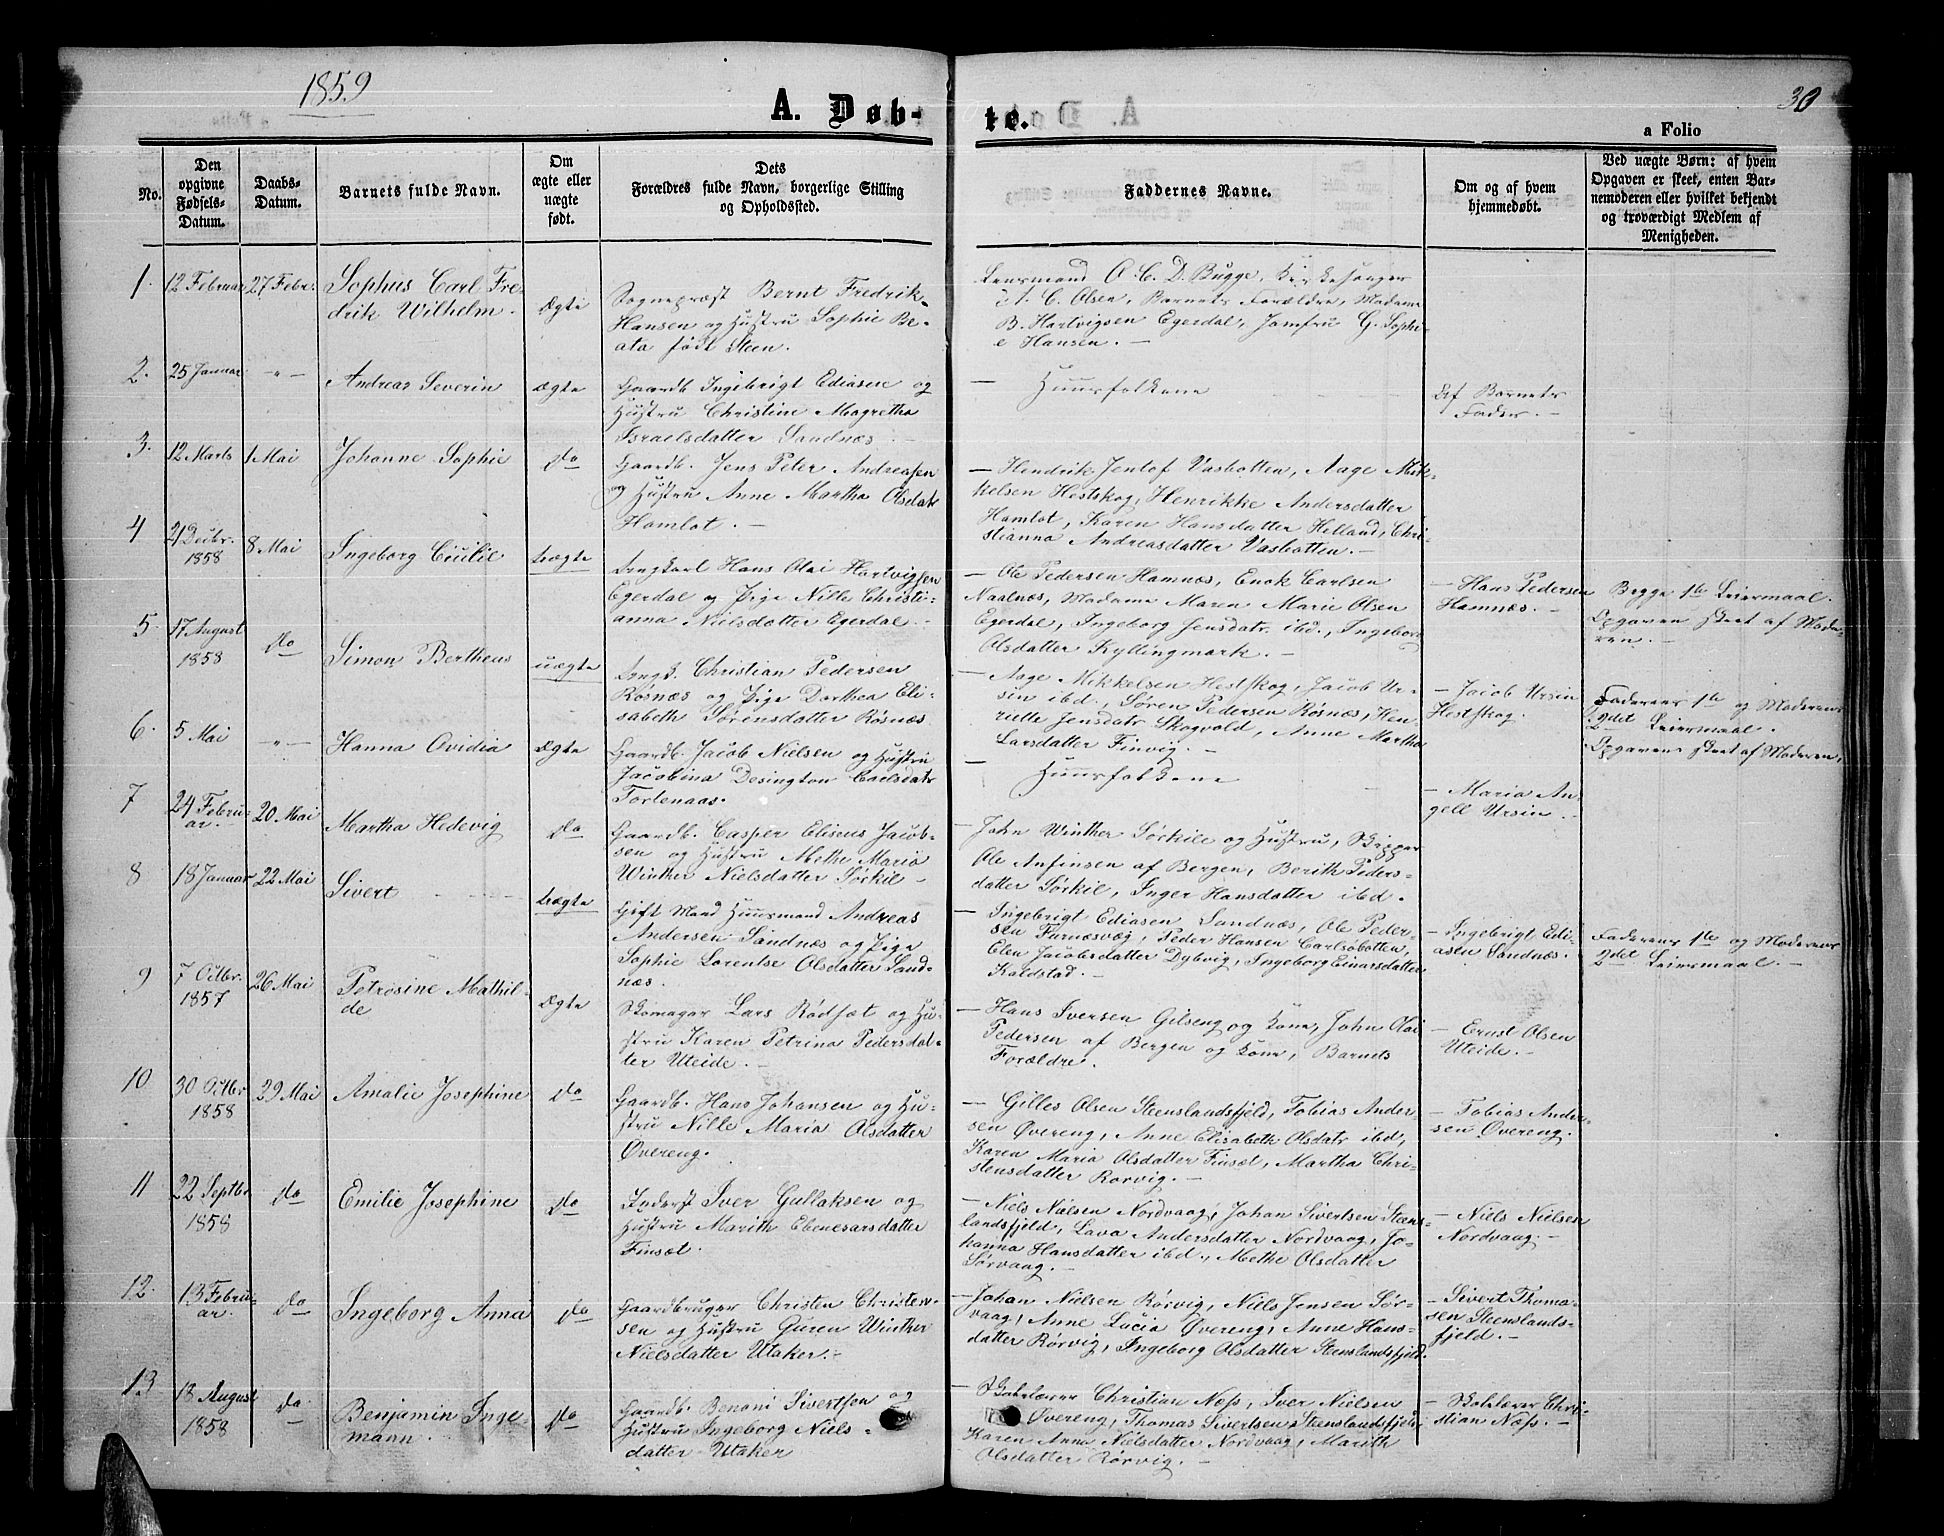 1859
A. Døb-
te.
30
a Folio
No.
Den
opgivne
Fødsels-
Datum.
Daabs-
Datum.
Barnets fulde Navn.
Om
ægte eller
uægte
født.
Dets
Forældres fulde Navn, borgerlige Stilling
og Opholdssted.
Faddernes Navne.
Om og af hvem
hjemmedøbt.
Ved uægte Børn: af hvem
Opgaven er skeet, enten Bar-
nemoderen eller hvilket bekjendt
og troværdigt Medlem af
Menigheden.
1.
12 Februar
27 Febr.
Sophus Carl Fre-
drik Wilhelm.
Ægte
Sognepræst Bernt Fredrik
Hansen og Hustru Sophie Be-
ata født Steen.
Lensmand A. C. D. Bugge, Kirkesanger
C. Olsen, Barnets Forældre, Madame
B. Hartvigsen Egerdal, Jomfru G. Sophi-
e Hansen. —
2.
25 Januar
-"-
Andreas Severin
ægte
Gaardb. Ingebrigt Ediasen og
Hustru Christine Magretha
Israelsdatter Sandnæs. —
— Huusfolkene
Af Barnets
Fader. —
3.
12 Marts
1 Mai
Johanne Sophie
do
Gaardb. Jens Peter Andreasen
og Hustru Anne Martha Olsdatr
Hamlot. —
— Hendrik Jentof Vasbotten, Aage Mik-
kelsen Hestskog, Henrikke Andersdatter
Hamlot, Karen Hansdatter Helland, Chri-
stianna Andreasdatter Vasbotten. —
4
21 Decbr.
1858
8 Mai
Ingeborg Cecilie
Uægte
Ungkarl Hans Olai Hartvigsen
Egerdal og Pige Nille Christi-
anna Nielsdatter Egerdal. —
— Ole Pedersen Hamnæs, Enok Carlsen
Naalnæs, Madame Maren Marie Olsen
Egerdal, Ingeborg Jensdatr. ibd., Ingeborg
Olsdatter Kyllingmark. —
— Hans Pedersen
Hamnæs. —
Begge 1ste Leiermaal.
Opgaven skeet af Mode-
ren. —
5.
17 August
1858
do
Simon Bertheus
uægte
Ungk. Christian Pedersen
Rösnæs og Pige Dorthea Eli-
sabeth Sörensdatter Rösnæs
— Aage Mikkelsen Hestskog, Jacob Ur-
sin ibd, Sören Pedersen Rösnæs, Hen-
riette Jensdatr Skogvold, Anne Martha
Larsdatter Finvig. —
— Jacob Ursin
Hestskog.
Faderens 1ste og Moderens
2det Leiermaal.
Opgaven skeet af Moderen.
6.
5 Mai
-"-
Hanna Ovidia
Ægte
Gaardb. Jacob Nielsen og Hustru
Jacobina Desington Carlsdatr
Tortenaas.
— Huusfolkene
7
24 Febru-
ar.
20 Mai
Martha Hedevig
do
Gaardb. Casper Eliseus Jacob-
sen og Hustru Methe Maria
Winther Nielsdatter Sörkil —
— John Winther Sörkile og Hustru, Skipper
Ole Anfinsen af Bergen, Berith Peders-
datter Sörkil, Inger Hansdatter ibd.
— Maria An-
gell Ursin. —
8
18 Januar
22 Mai
Sivert
Uægte
Gift Mand Huusmand Andreas
Andersen Sandnæs og Pige
Sophie Lorentse Olsdatter Sand-
næs.
— Ingebrigt Ediasen Sandnæs, Ole Peder-
sen Furnesvæg, Peder Hansen Carlsbotten,
Elen Jacobsdatter Dybvig, Ingeborg Einarsdatter
Kaldstad.
— Ingebrigt Edi-
asen Sandnæs.
Faderens 1ste og Moderens
2det Leiermaal. —
9
7 Octbr.
1857
26 Mai
Petrosine Mathil-
de
Ægte
Skomager Lars Rödsæt og Hu-
stru Karen Petrina Pedersdat-
ter Uteide. —
— Hans Iversen Gilseng og Kone, John Olai
Pedersen af Bergen og Kone, Barnets
Forældre.
— Ernst Olsen
Uteide. —
10
30 Octbr
1858
29 Mai
Amalie Josephine
do
Gaardb. Hans Johansen og Hu-
stru Nille Maria Olsdatter
Övereng.
— Gilles Olsen Steenslandsfjeld, Tobias Ander
sen Övereng, Anne Elisabeth Olsdatr ibd,
Karen Maria Olsdatter Finsæt, Martha Chri-
stensdatter Rörvig. —
— Tobias Ander-
sen Övereng.
11
22 Septbr
1858
do
Emilie Josephine
do
Inderst Iver Gullaksen og
Hustru Marith Ebenesarsdatter
Finsæt.
— Niels Nielsen Nordvaag, Johan Sivertsen Steens-
landsfjeld, Lava Andersdatter Nordvaag, Jo-
hanna Hansdatter ibd., Methe Olsdatter
Sörvaag. —
— Niels Nielsen
Nordvaag. —
12.
13 Febru-
ar.
do
Ingeborg Anna
do
Gaardbruger Christen Christen-
sen og Hustru Guren Winther
Nielsdatter Utaker. —
— Johan Nielsen Rörvig, Niels Jensen Sör-
vaag, Anne Lucia Övereng, Anne Hans-
datter Rörvig, Ingeborg Olsdatter Steenslandsfjeld.
— Sivert Thoma-
sen Steenslands-
fjeld. —
13
18 August
1858
do
Benjamin Inge-
mann.
do
Gaardb. Benoni Sivertsen og
Hustru Ingeborg Niels-
datter Utaker
— Skolelærer Christian Næss, Iver Nielsen
Övereng, Thomas Sivertsen Steenslandsfjeld,
Karen Anna Nielsdatter Nordvaag, Marith
Olsdatter Rörvig. —
— Skolelærer Chri-
stian Næss. —